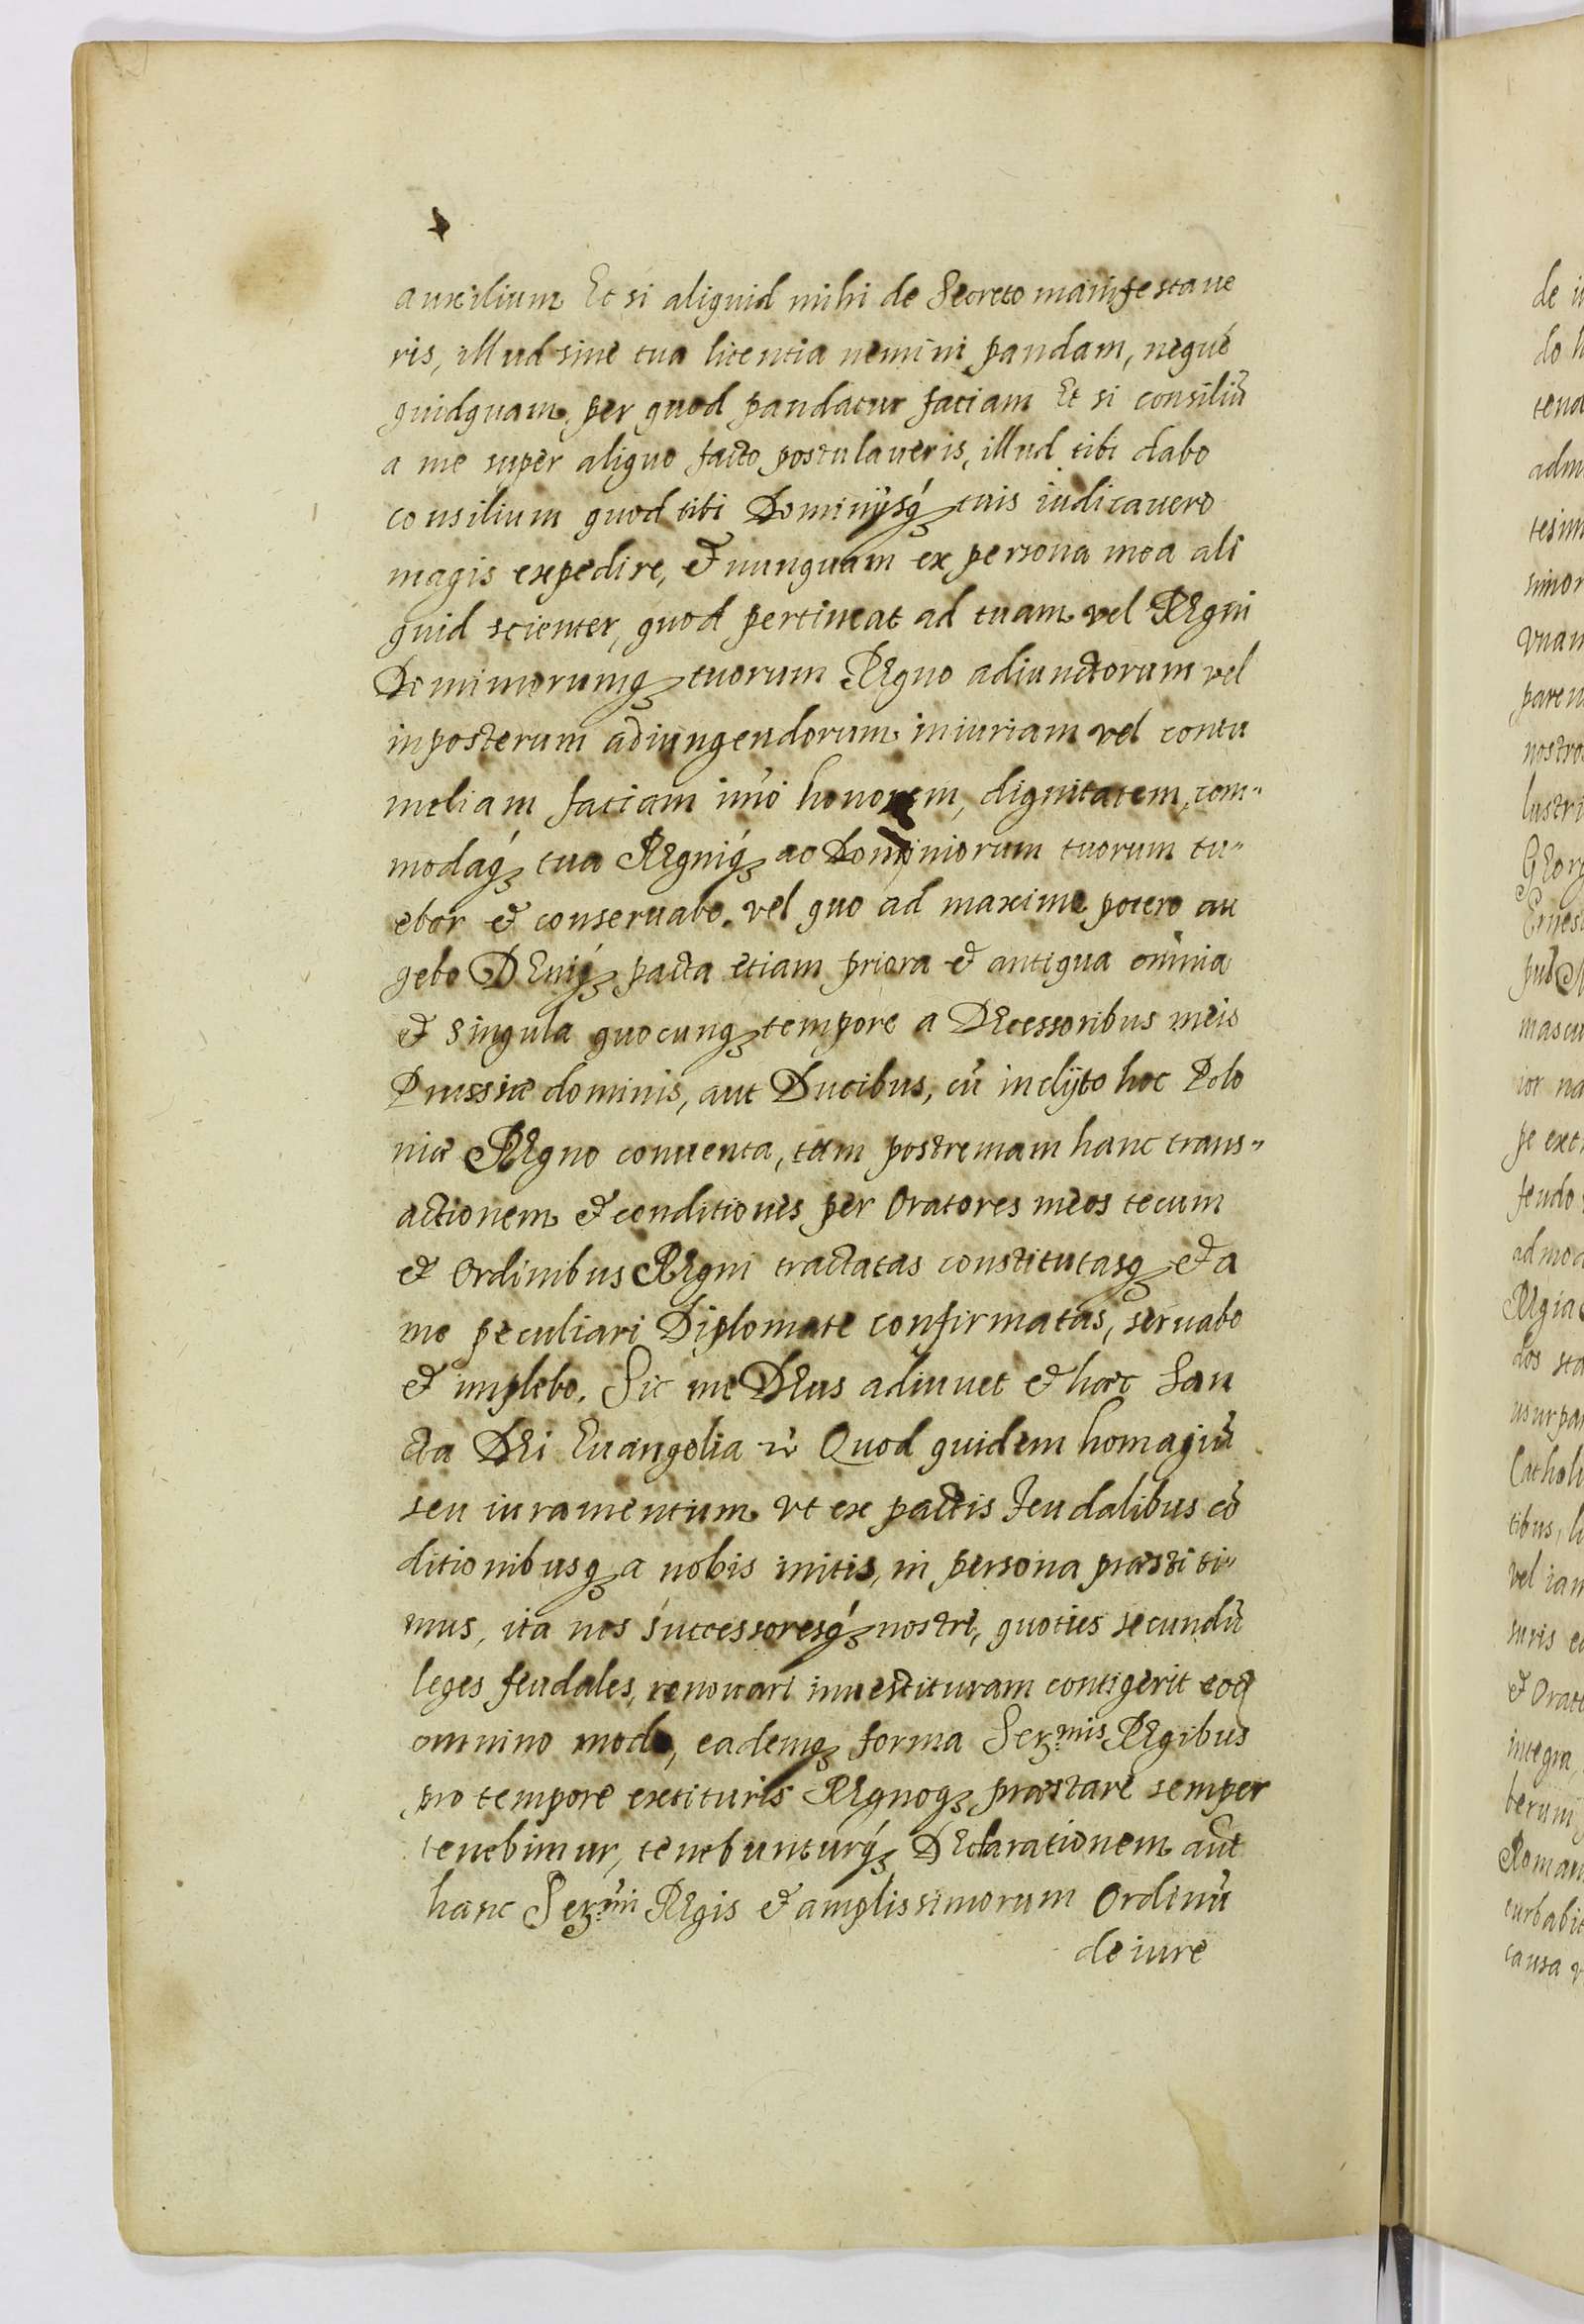 auxilium Et si aliquid mihi de Secreto manifestaue
ris, illud sine tua licentia nemini pandam, neque
quidquam, per quod pandatur faciam Et si consiliũ
a me super aliquo facto postulaueris, illud tibi dabo
consilium quod tibi Dominijsq́ꝫ tuis iudicauero
magis expedire, & nunquam ex persona mea ali
quid scienter, quod pertineat ad tuam vel REgni
Dominiorumqꝫ tuorum REgno adiunctorum vel
inposterum adiungendorum iniuriam vel contu
meliam faciam imò honorem, dignitatem, com„
modaq́ꝫ tua REgniq́ꝫ ac Dominiorum tuorum tu„
ebor & conseruabo, vel quo ad maxime potero au
gebo DEniq́ꝫ pacta etiam priora & antiqua omnia
& singula quocunqꝫ tempore a DEcessoribus meis
Prussiæ dominis, aut Ducibus, cũ inclÿto hoc Polo
niæ REgno conuenta, tum postremam hanc trans„
actionem & conditiones per Oratores meos tecum
& Ordinibus REgni tractatas constitutasqꝫ & a
me peculiari Diplomate confirmatas, seruabo
& implebo. Sic me DEus adiuuet & hæc San
cta DEi Euangelia Quod quidem homagiũ
seu iuramentum vt ex pactis feudalibus cõ
ditionibusqꝫ a nobis initis, in persona præstiti„
mus, ita nos successoresq́ꝫ nostri, quoties secundũ
leges feudales, renouari inuestituram contigerit eoq
omnino modo, eademqꝫ forma Ser.mis REgibus
pro tempore extituris REgnoqꝫ præstare semper
tenebimur, tenebunturq́ꝫ DEclarationem aũt
hanc Ser.mi REgis & amplissimorum Ordinũ
de iure